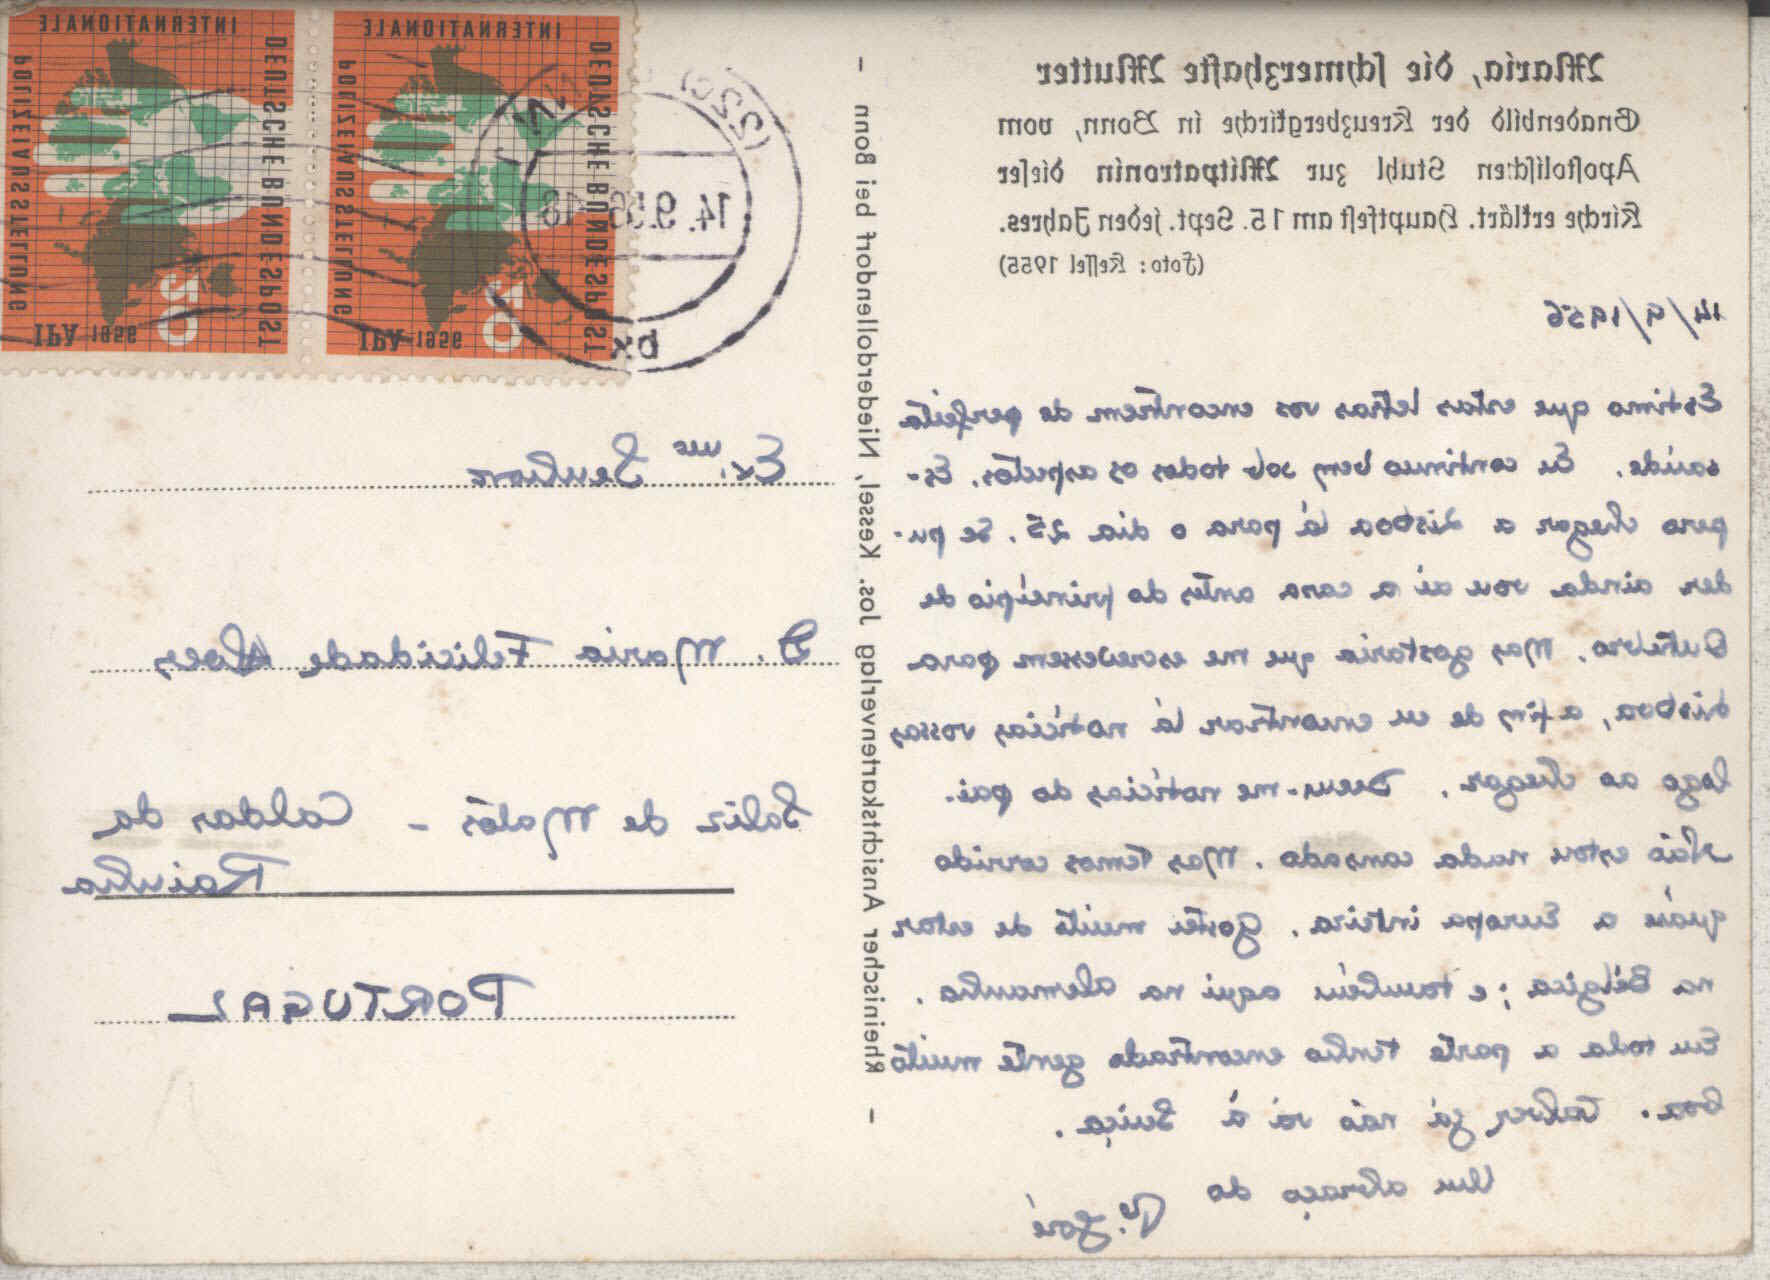 Maria, die schmerzhafte Mutter
Gnadenbild der Kreuzbergkirche in Bonn, vom
Apostolischen Stuhl zur Mitpatronin dieser
Kirche erklärt. Hauptfest am 15. Sept. jeden Jahres.
(Foto: Kessel 1955)
14/9/1956
Estimo que estas letras vos encontrem de perfeita
saúde. Eu continuo bem sob todos os aspectos. Es-
pero chegar a Lisboa lá para o dia 25. Se pu-
der ainda vou aí a casa antes do princípio de
Outubro. Mas gostaria que me escrevessem para
Lisboa, a fim de eu encontrar lá notícias vossas
logo ao chegar. Deem-me notícias do pai.
Não estou nada cansado. Mas temos corrido
quási a Europa inteira. Gostei muito de estar
na Bélgica; e também aqui na Alemanha.
Em toda a parte tenho encontrado gente muito
boa. Talvez já não vá à Suiça.
Um abraço do
P.e José
Rheinischer Ansichtskartenverlag Jos. Kessel, Niederdollendorf bei Bonn
INTERNATIONALE
POLIZEIAUSSTELLUNG
DEUTSCHE BUNDESPOST
20
IPA 1956
INTERNATIONALE
POLIZEIAUSSTELLUNG
DEUTSCHE BUNDESPOST
20
IPA 1956
(22c)
14.9.56-18
bx
Ex.ma Senhora
D. Maria Felicidade
Salir de Matos - Caldas da
Rainha
PORTUGAL